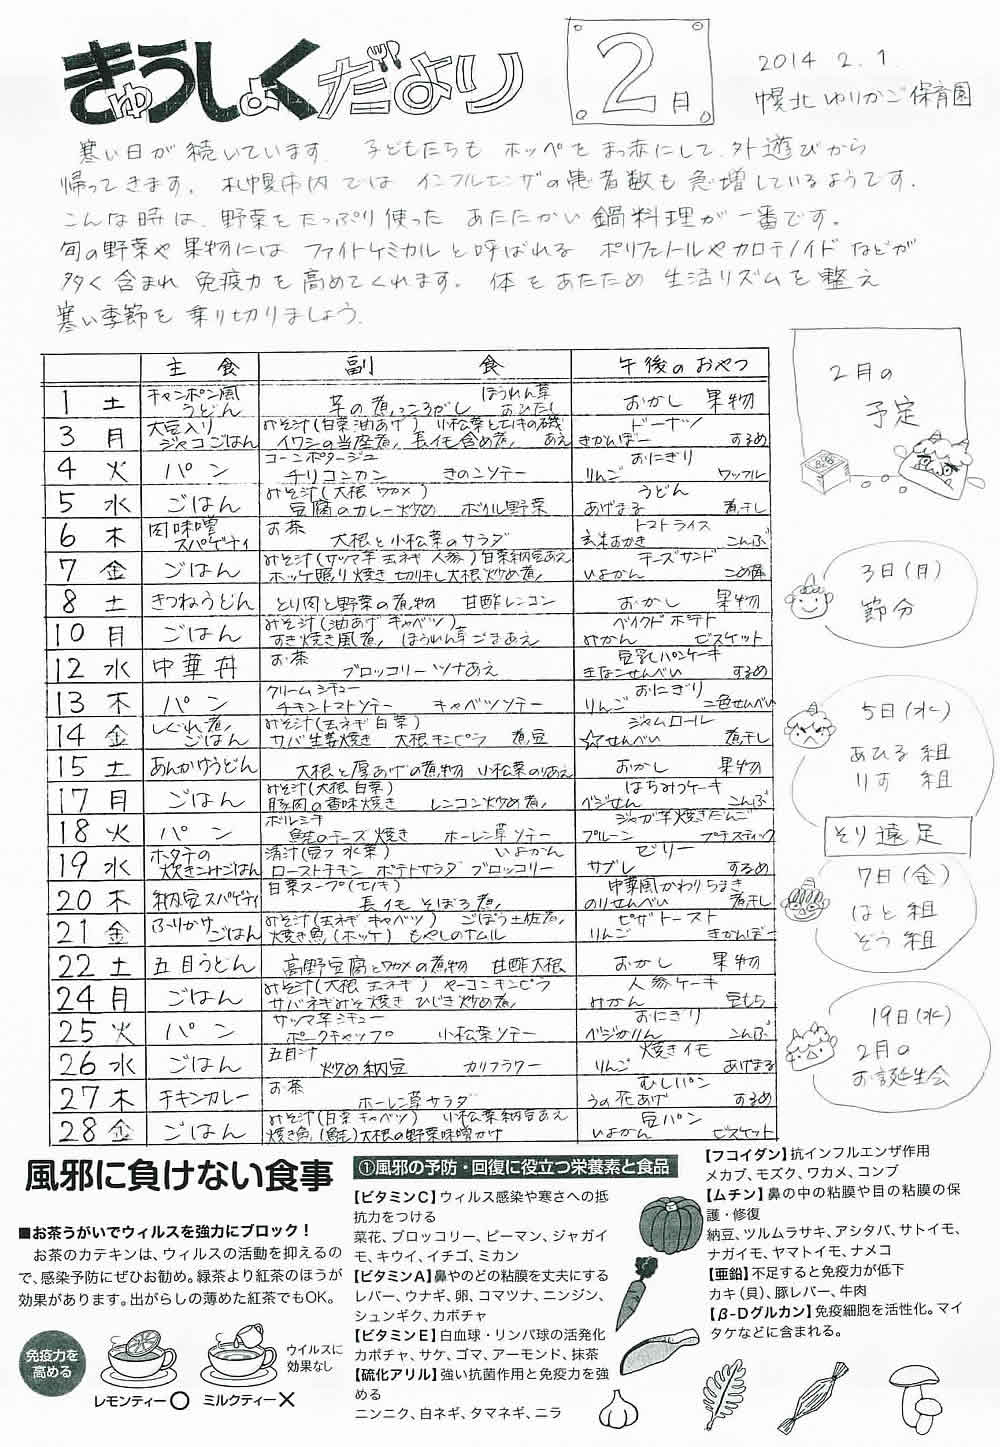 きゅうしょくだより
2月
2014 2. 1.
幌北ゆりかご保育園
寒い日が続いています。子どもたちも ホッペをまっ赤にして、外遊びから
帰ってきます。札幌市内では インフルエンザの患者数も急増しているようです。
こんな時は、野菜をたっぷり使った あたたかい鍋料理が一番です。
旬の野菜や果物には ファイトケミカルと呼ばれる ポリフェノールやカロテノイドなどが
多く含まれ 免疫力を高めてくれます。体をあたため 生活リズムを整え
寒い季節を乗り切りましょう。
主食 副食 午後のおやつ
1 土 チャンポン風うどん 芋の煮っころがし ほうれん草おひたし おかし 果物
3 月 大豆入りジャコごはん みそ汁(白菜 油あげ) 小松菜とひじきの磯あえ イワシの当座煮, 長イモ含め煮, ドーナツ きかんぼー するめ
4 火 パン コーンポタージュ チリコンカン きのこソテー おにぎり りんご ワッフル
5 水 ごはん みそ汁(大根 ワカメ) 豆腐のカレー炒め ボイル野菜 うどん あげまる 煮干し
6 木 肉味噌スパゲティ お茶 大根と小松菜のサラダ トマトライス 玄米おかき こんぶ
7 金 ごはん みそ汁(サツマ芋 玉ネギ 人参) 白菜納豆あえ ホッケ照り焼き 切干し大根炒め煮, チーズサンド いよかん
8 土 きつねうどん とり肉と野菜の煮物 甘酢レンコン おかし 果物
10 月 ごはん みそ汁(油あげ キャベツ) すき焼き風煮, ほうれん草ごまあえ ベイクドポテト みかん ビスケット
12 水 中華丼 お茶 ブロッコリーツナあえ 豆乳パンケーキ きなこせんべい するめ
13 木 パン クリームシチュー チキントマトソテー キャベツソテー おにぎり りんご 二色せんべい
14 金 しぐれ煮,ごはん みそ汁(玉ネギ 白菜) サバ生姜焼き 大根キンピラ 煮,豆 ジャムロール ☆せんべい 煮干し
15 土 あんかけうどん 大根と厚あげの煮物 小松菜のりあえ おかし 果物
17 月 ごはん みそ汁(大根 白菜) 豚肉の香味焼き レンコン炒め煮, はちみつケーキ ベジせん こんぶ
18 火 パン ボルシチ 鮭のチーズ焼き ホーレン草ソテー ジャガ芋焼きだんご プルーン プチスティック
19 水 ホタテの炊きこみごはん 清汁(豆フ 水菜) いよかん ローストチキン ポテトサラダ ブロッコリー ゼリー サブレ するめ
20 木 納豆スパゲティ 白菜スープ(エノキ) 長イモそぼろ煮, 中華風かわりちまき のりせんべい 煮干し
21 金 ふりかけごはん みそ汁(玉ネギ キャベツ) ごぼう土佐煮, 焼き魚(ホッケ) もやしのナムル ピザトースト りんご きかんぼー
22 土 五目うどん 高野豆腐とワカメの煮物 甘酢大根 おかし 果物
24 月 ごはん みそ汁(大根 玉ネギ) ヤーコンキンピラ サバネギみそ焼き ひじき炒め煮, 人参ケーキ みかん 豆もち
25 火 パン サツマ芋シチュー ポークチャップ 小松菜ソテー おにぎり ベジかりん こんぶ
26 水 ごはん 五目汁 炒め納豆 カリフラワー 焼きイモ りんご あげまる
27 木 チキンカレー お茶 ホーレン草サラダ むしパン うの花あげ するめ
28 金 ごはん みそ汁(白菜 キャベツ) 小松菜納豆あえ 焼き魚(鮭) 大根の野菜味噌かけ 豆パン いよかん ビスケット
2月の
予定
3日(月)
節分
5日(水)
あひる組
りす組
そり遠足
7日(金)
はと組
ぞう組
19日(水)
2月の
お誕生会
風邪に負けない食事
■お茶うがいでウィルスを強力にブロック!
お茶のカテキンは、ウィルスの活動を抑えるの
で、感染予防にぜひお勧め。緑茶より紅茶のほうが
効果があります。出がらしの薄めた紅茶でもOK。
免疫力を
高める
ウイルスに
効果なし
レモンティー○ ミルクティー×
①風邪の予防・回復に役立つ栄養素と食品
【ビタミンC】ウィルス感染や寒さへの抵
抗力をつける
菜花、ブロッコリー、ピーマン、ジャガイ
モ、キウイ、イチゴ、ミカン
【ビタミンA】鼻やのどの粘膜を丈夫にする
レバー、ウナギ、卵、コマツナ、ニンジン、
シュンギク、カボチャ
【ビタミンE】白血球・リンパ球の活発化
カボチャ、サケ、ゴマ、アーモンド、抹茶
【硫化アリル】強い抗菌作用と免疫力を強
める
ニンニク、白ネギ、タマネギ、ニラ
【フコイダン】抗インフルエンザ作用
メカブ、モズク、ワカメ、コンブ
【ムチン】鼻の中の粘膜や目の粘膜の保
護・修復
納豆、ツルムラサキ、アシタバ、サトイモ、
ナガイモ、ヤマトイモ、ナメコ
【亜鉛】不足すると免疫力が低下
カキ(貝)、豚レバー、牛肉
【β-Dグルカン】免疫細胞を活性化。マイ
タケなどに含まれる。